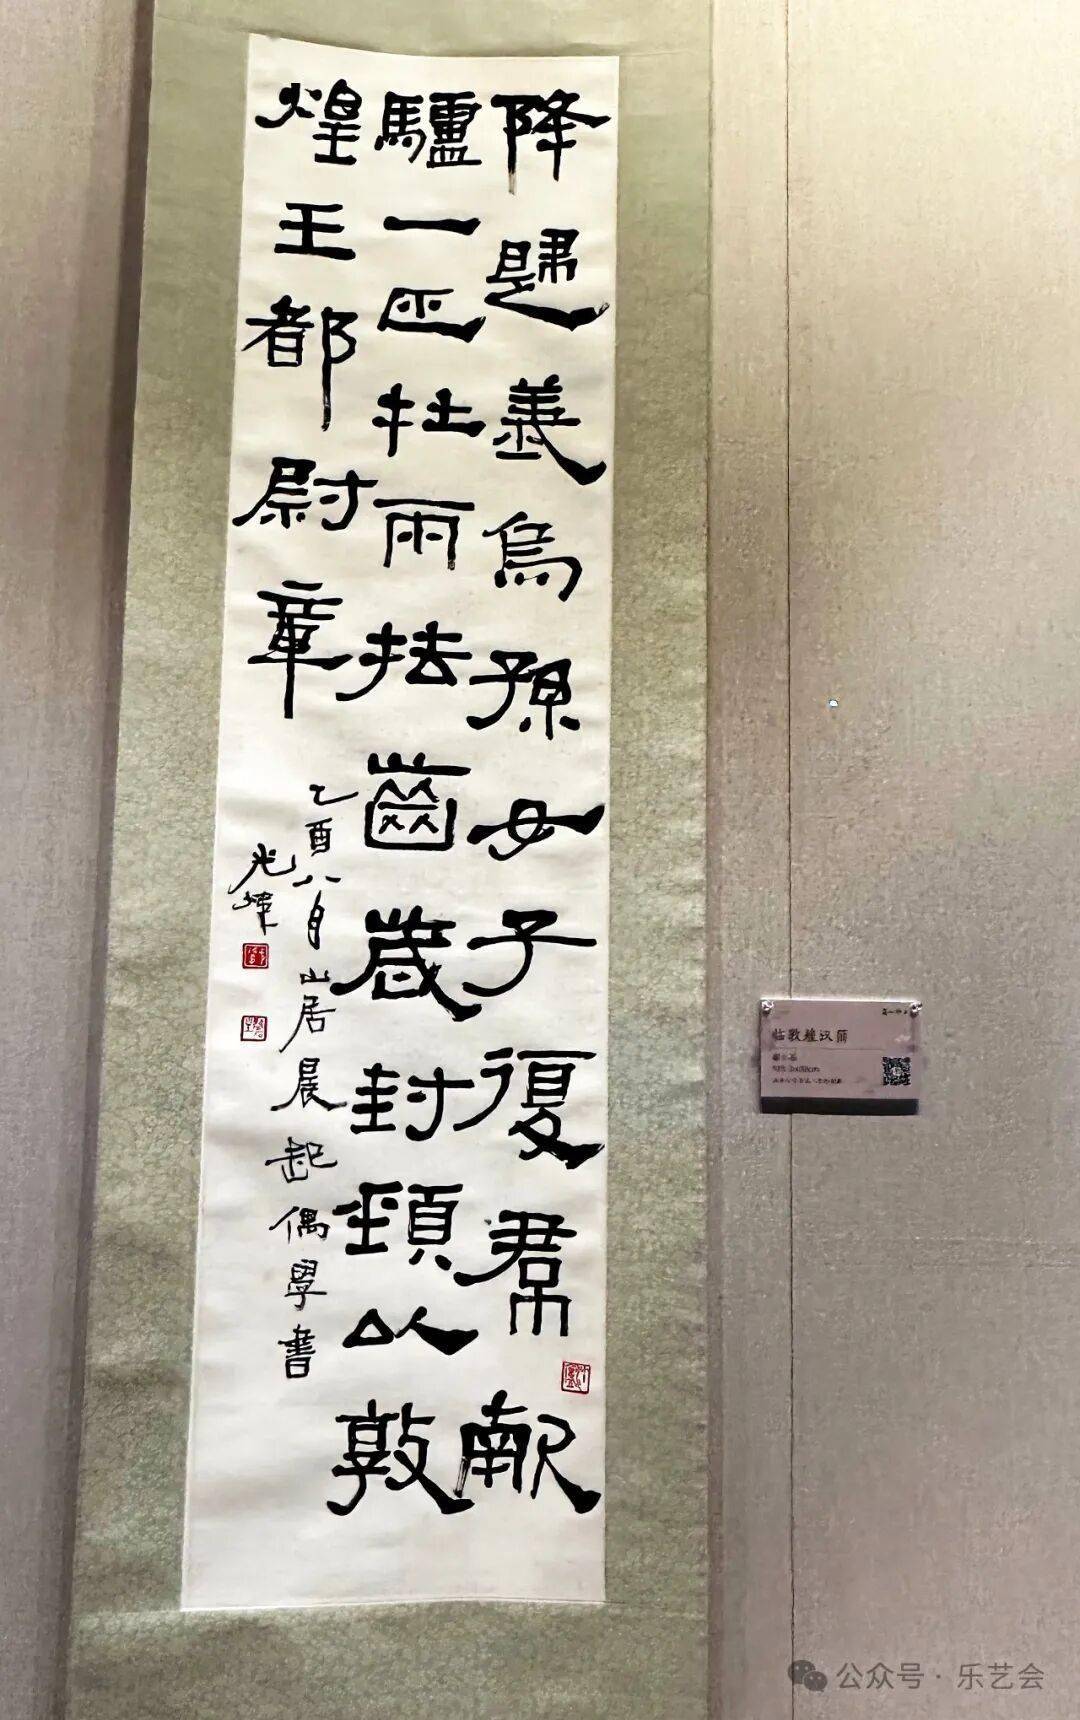 降歸義烏孫女子復帬獻
驢一匹牡兩抾齒歲封頸以敦
煌王都尉章
乙酉八月山居晨起偶學書
光煒
临敦煌汉简
公众号·乐艺会